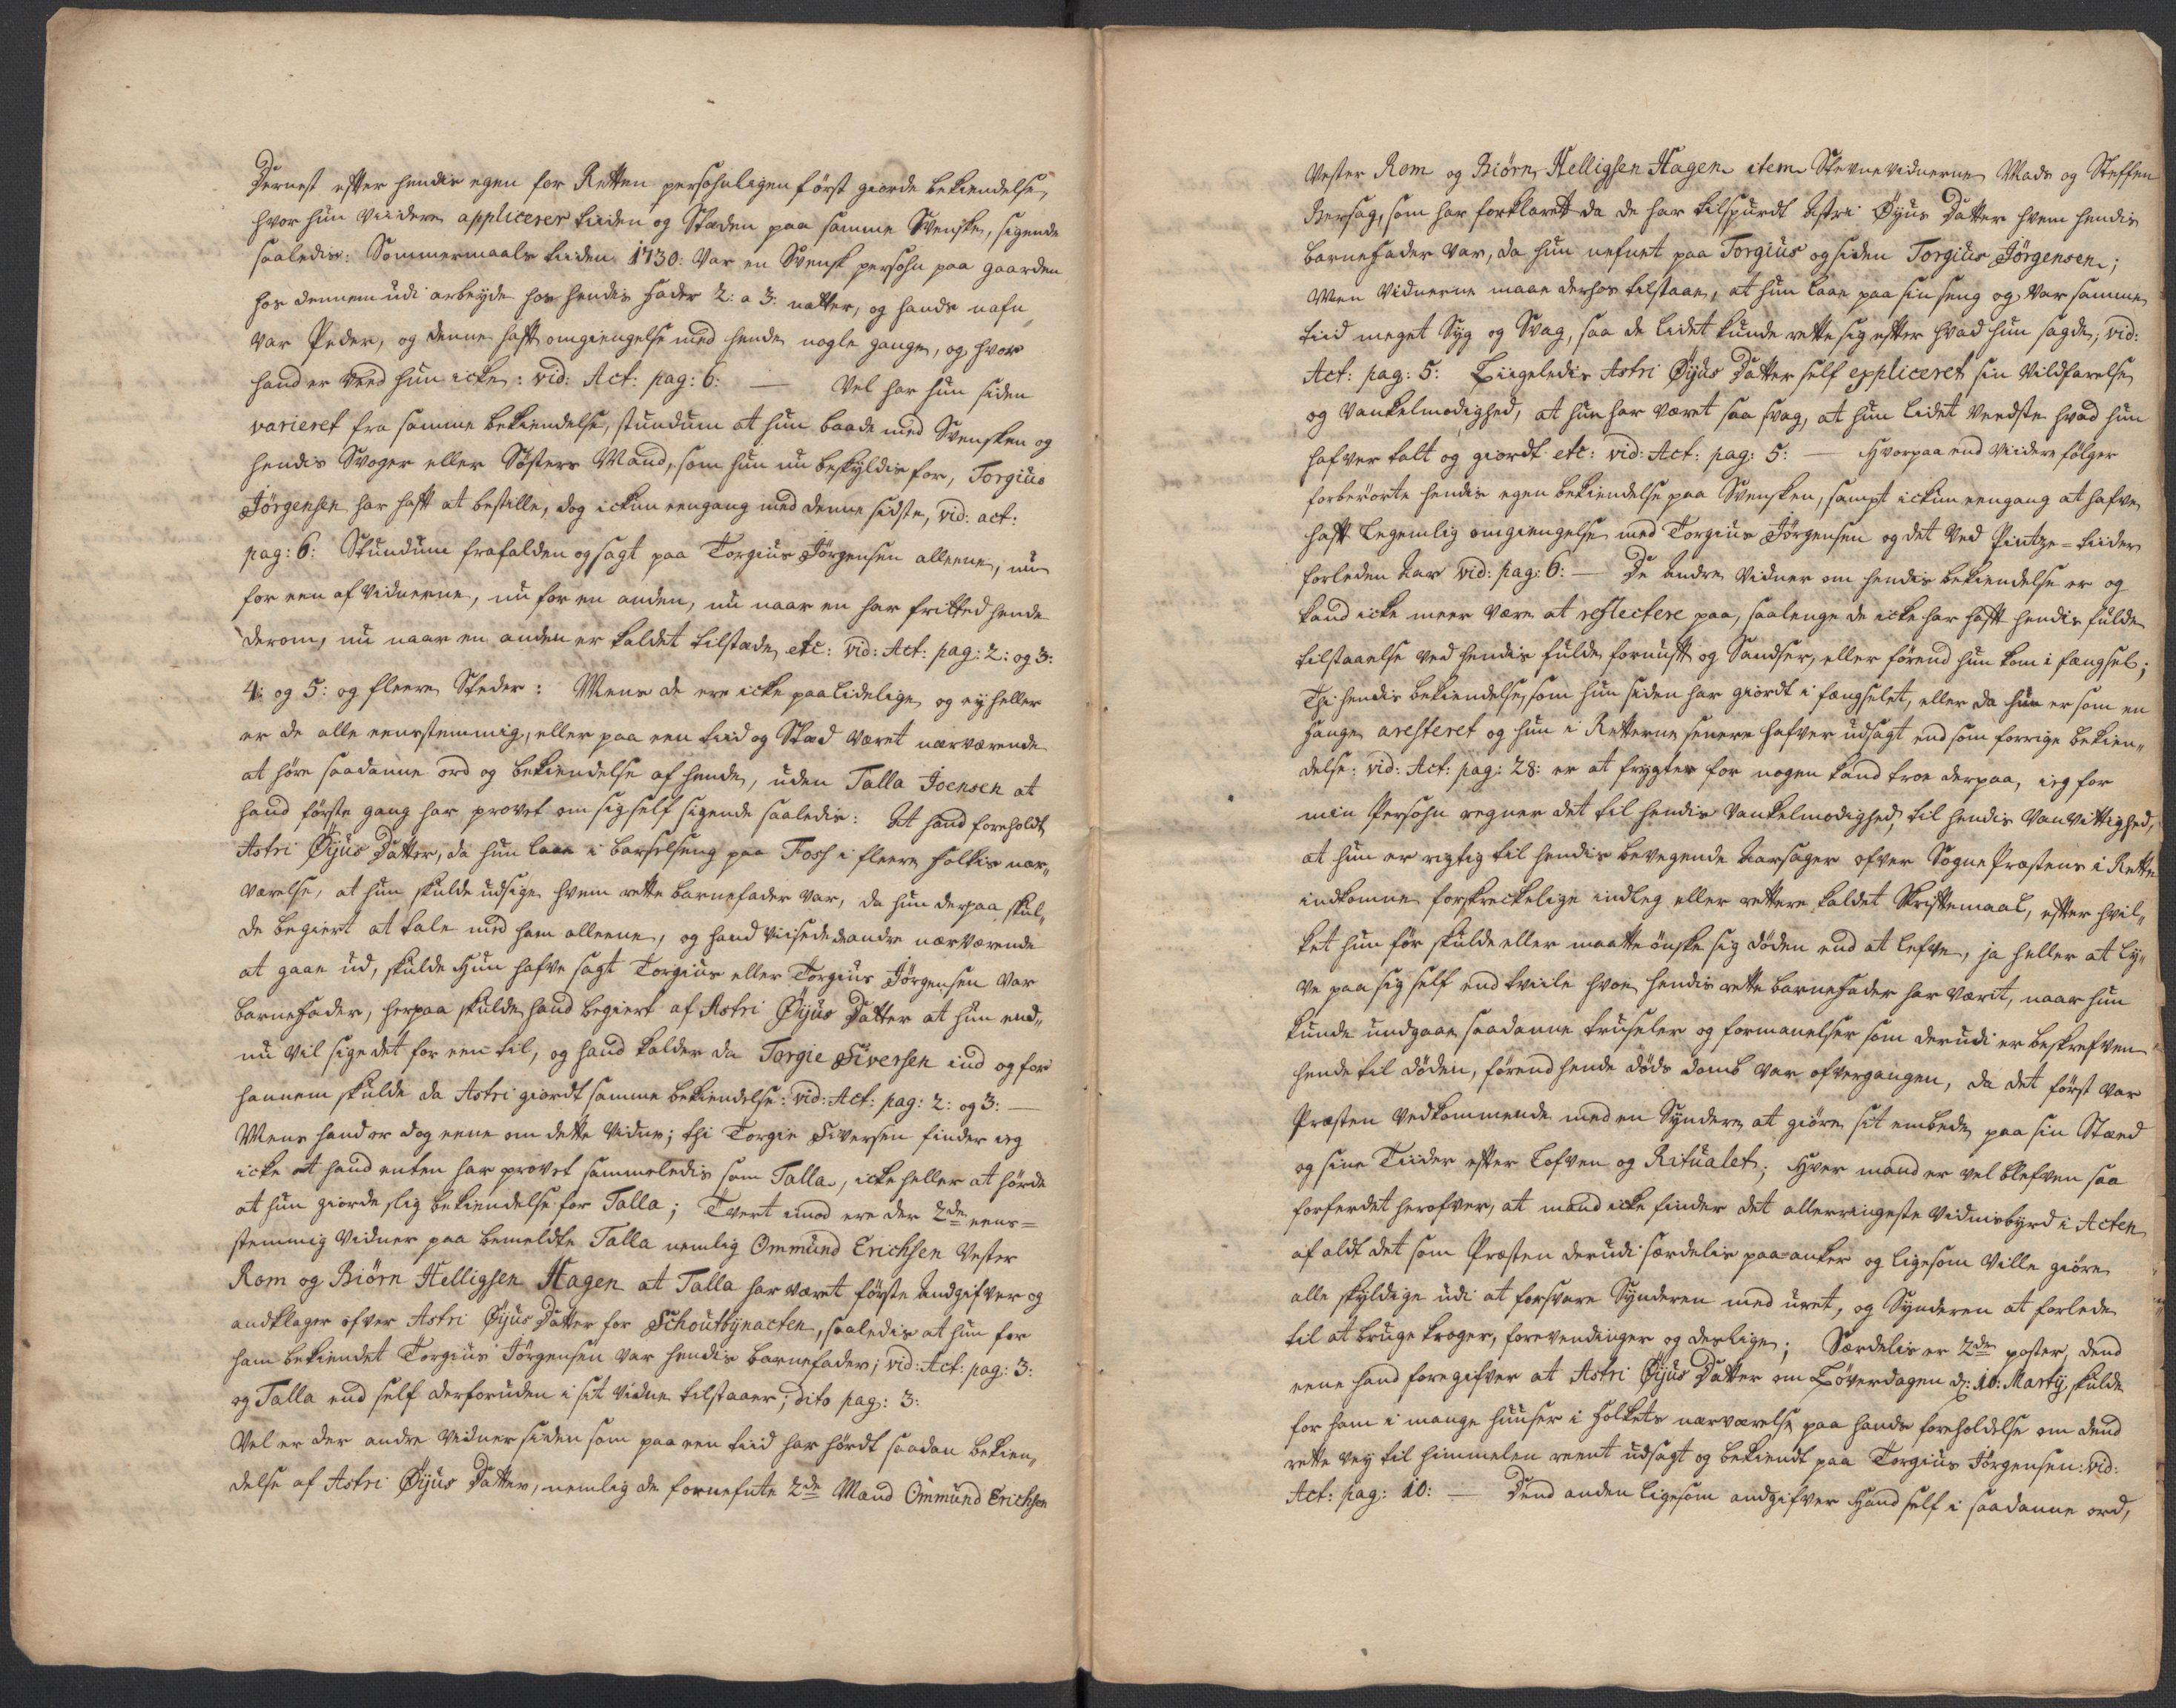 Dernest efter hendis egen for Retten persohnligen först giorde bekiendelse,
hvor hun viidere applicerer tiiden og Stæden paa samme Svenske, sigende
saaledis: Sommermaals tiiden 1730: Var en Svensk persohn paa gaarden
hos dennem udi arbeyde hos hendis fader 2: a 3: nætter, og hands nafn
var Peder, og denne hafft omgiengelse med hende nogle gange, og hvor
hand er veed hun icke: vid: Act: pag: 6: — Vel har hun siden
varieret fra samme bekiendelse, stundum at hun baade med Svensken og
hendis Svoger eller Søsters Mand, som hun nu beskyldis for, Torgius
Jörgensen har hafft at bestille, dog ickun eengang med denne sidste, vid: act:
pag: 6: Stundum frafalden og sagt paa Torgius Jörgensen alleene, nu
for een af vidnerne, nu for en anden, nu naar en har fritted hende
derom, nu naar en anden er kaldet tilstæde, etc: vid: Act: pag: 2: og 3:
4: og 5: og fleere Steder: Mens de ere icke paalidelige, og ey heller
er de alle eenstemmig, eller paa een tiid og Stæd været nærværende
at höre saadanne ord og bekiendelse af hende, uden Talla Joensen at
hand förste gang har provet om sig self sigende saaledis: At hand foreholdt
Astri Öÿus Datter, da hun laae i barselseng paa Foss i fleere folkis nær„
værelse, at hun skulde udsige hvem rette barnefader var, da hun derpaa skul„
de begiert at tale med ham alleene, og hand viisede de andre nærværende
at gaae ud, skulde Hun hafve sagt Torgius eller Torgius Jörgensen var
barnefader, herpaa skulde hand begiert af Astri Öÿus Datter at hun end„
nu vil sige det for een til, og hand kalder da Torgie Siversen ind og for
hannem skulde da Astri giordt samme bekiendelse: vid: Act: pag: 2: og 3: —
Mens hand er dog eene om dette vidne; thi Torgie Siversen finder ieg
icke at hand enten har provet sammeledis som Talla, icke heller at hörde
at hun giorde slig bekiendelse for Talla; Tvert imod ere der 2de eens=
stemmig vidner paa bemeldte Talla nemlig Ommund Erichsen Vester
Rom og Biörn Helligsen Hagen at Talla har været förste Andgifver og
andklager ofver Astri Öÿus Datter for Schoutbÿnachten, saaledis at hun for
ham bekiendet Torgius Jörgensen var hendis barnefader; vid: Act: pag: 3:
og Talla end self derforuden i sit vidne tilstaaer; dito pag: 3:
Vel er der andre vidner siden som paa een tiid har hördt saadan bekien„
delse af Astri Öÿus Datter, nemlig de fornefnte 2de Mænd Ommund Erichsen
Vester Rom og Biörn Helligsen Hagen item Stevnevidnerne Mads og Steffen
som har forklaret da de har tilspurdt Astri Öyus Datter hvem hendis
barnefader var, da hun nefnet paa Torgius og siden Torgius Jörgensen;
Men vidnerne maae derhos tilstaae, at hun laae paa sin seng og var samme
tiid meget Syg og Svag, saa de lidet kunde rette sig efter hvad hun sagde; vid:
Act: pag: 5: Ligeledis Astri Öÿus Datter self expliceret sin vildfarelse
og vankelmodighed, at hun har været saa svag, at hun lidet veedste hvad hun
hafver talt og giordt etc: vid: Act: pag: 5: — Hvorpaa end viidere fölger
forberörte hendis egen bekiendelse paa Svensken, sampt ickun eengang at hafve
hafft legemlig omgiengelse med Torgius Jörgensen og det ved Pintze=tiider
forleden Aar vid: pag: 6: — De andre vidner om hendis bekiendelse er og
kand icke meer være at reflectere paa, saalenge de icke har hafft hendis fulde
tilstaaelse ved hendis fulde fornufft og Sandser, eller förend hun kom i fængsel;
Thi hendis bekiendelse, som hun siden har giordt i fængselet, eller da hun er som en
fange aresteret og hun i Retterne senere hafver udsagt end som forrige bekien„
delse: vid: Act: pag: 28: er at frygter for nogen kand troe derpaa, ieg for
min Persohn regner det til hendis vankelmodighed, til hendis vanvittighed,
at hun er rigtig til hendis bevegende Aarsager ofver Sogne Præstens i Rette
indkomne forskreckelige indleg eller rettere kaldet Skriftemaal, efter hvil„
ket hun för skulde eller maatte önske sig döden end at lefve, ja heller at ly„
ve paa sig self end tviile hvor hendis rette barnefader har værit, naar hun
kunde undgaae saadanne truseler og formanelser som derudi er beskrefven
hende til döden, förend hende döds domb var ofvergangen, da det först var
Præsten vedkommende med en Syndere at giöre sit embede paa sin Stæd
og sine Tiider efter Lofven og Ritualet; Hver mand er vel blefven saa
forferdet herofver, at mand icke finder det allerringeste vidnisbyrd i Acten
af aldt det som Præsten derudi særdelis paa=anker og ligesom ville giöre
alle skyldige udi at forsvare Synderen med uret, og Synderen at forlede
til at bruge kroger, forevendinger og deslige; Særdelis er 2de poster, dend
eene hand foregifver at Astri Öÿus Datter om Löverdagen d: 10: Martÿ skulde
for ham i mange huuser i folkets nærværelse paa hands foreholdelse om dend
rette vey til himmelen reent udsagt og bekiendt paa Torgius Jörgensen: vid:
Act: pag: 10: — Dend anden ligesom andgifver Hand self i saadanne ord,